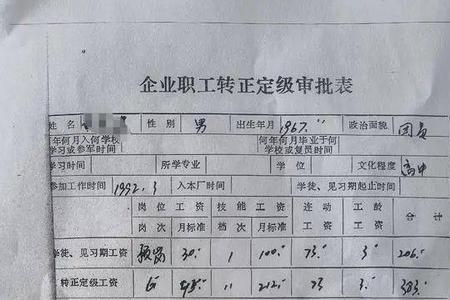 企业职工转正定级审批表
姓名 性别 男 出生年月 1967.11 政治面貌 团员
何年何月入何学校学习或参军时间 何年何月毕业于何学校或复员时间
学习时间 所学专业 学位 文化程度 高中
参加工作时间 1992.3 入本厂时间 学徒、见习期起止时间
岗位工资 技能工资 连动工资 工龄工资 合计
岗次 月标准 档次 月标准
学徒、见习期工资 30. 1 100. 73 3 206.
转正定级工资 11 212. 73 3. 383.